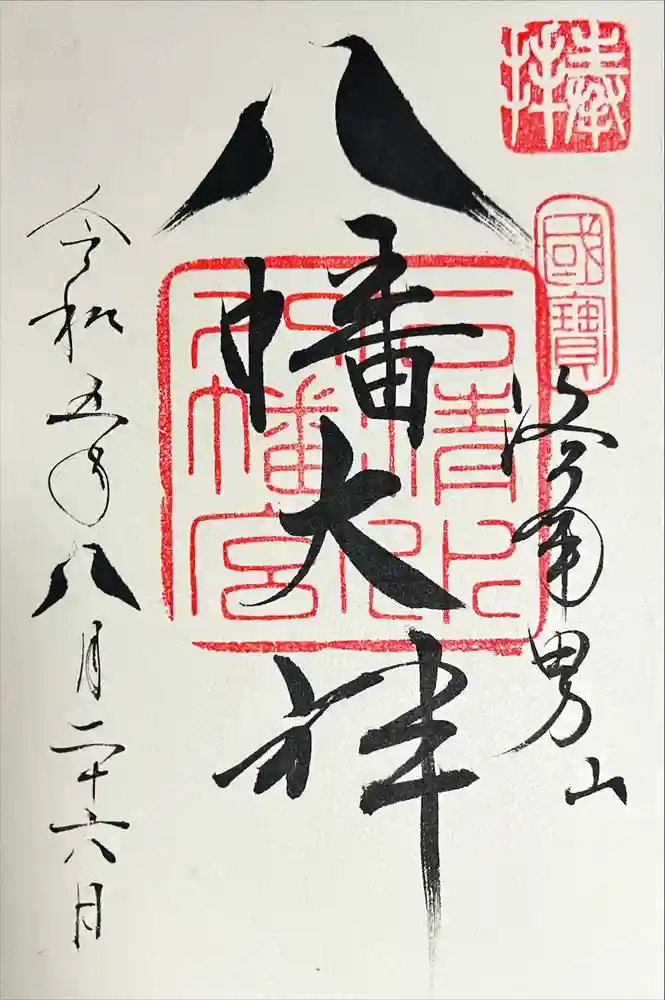 奉拝
國寶
洛南男山
八幡大神
石清水八幡宮
令和五年八月二十六日